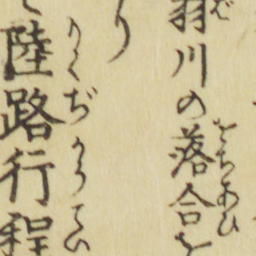 羽川の落合を
をちあひ
り
陸路行程
りくぢかうてい